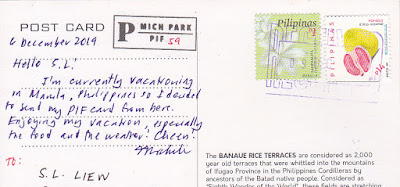 POST CARD
P MICH PARK
PIF 59
6 December 2019
Hello S.L!
I'm currently vacationing
in Manila, Philippines so I decided
to sent my PIF card from here.
Enjoying my vacation, especially
the food and the weather! Cheers!
TO:
S. L. LIEW
Pilipinas
PILIPINAS
The BANAUE RICE TERRACES are considered as 2,000
year old terraces that were whittled into the mountains
of Ifugao Province in the Philippines Cordilleras by
ancestors of the Batad native people. Considered as
"Eighth Wonder of the World", these fields are stretching